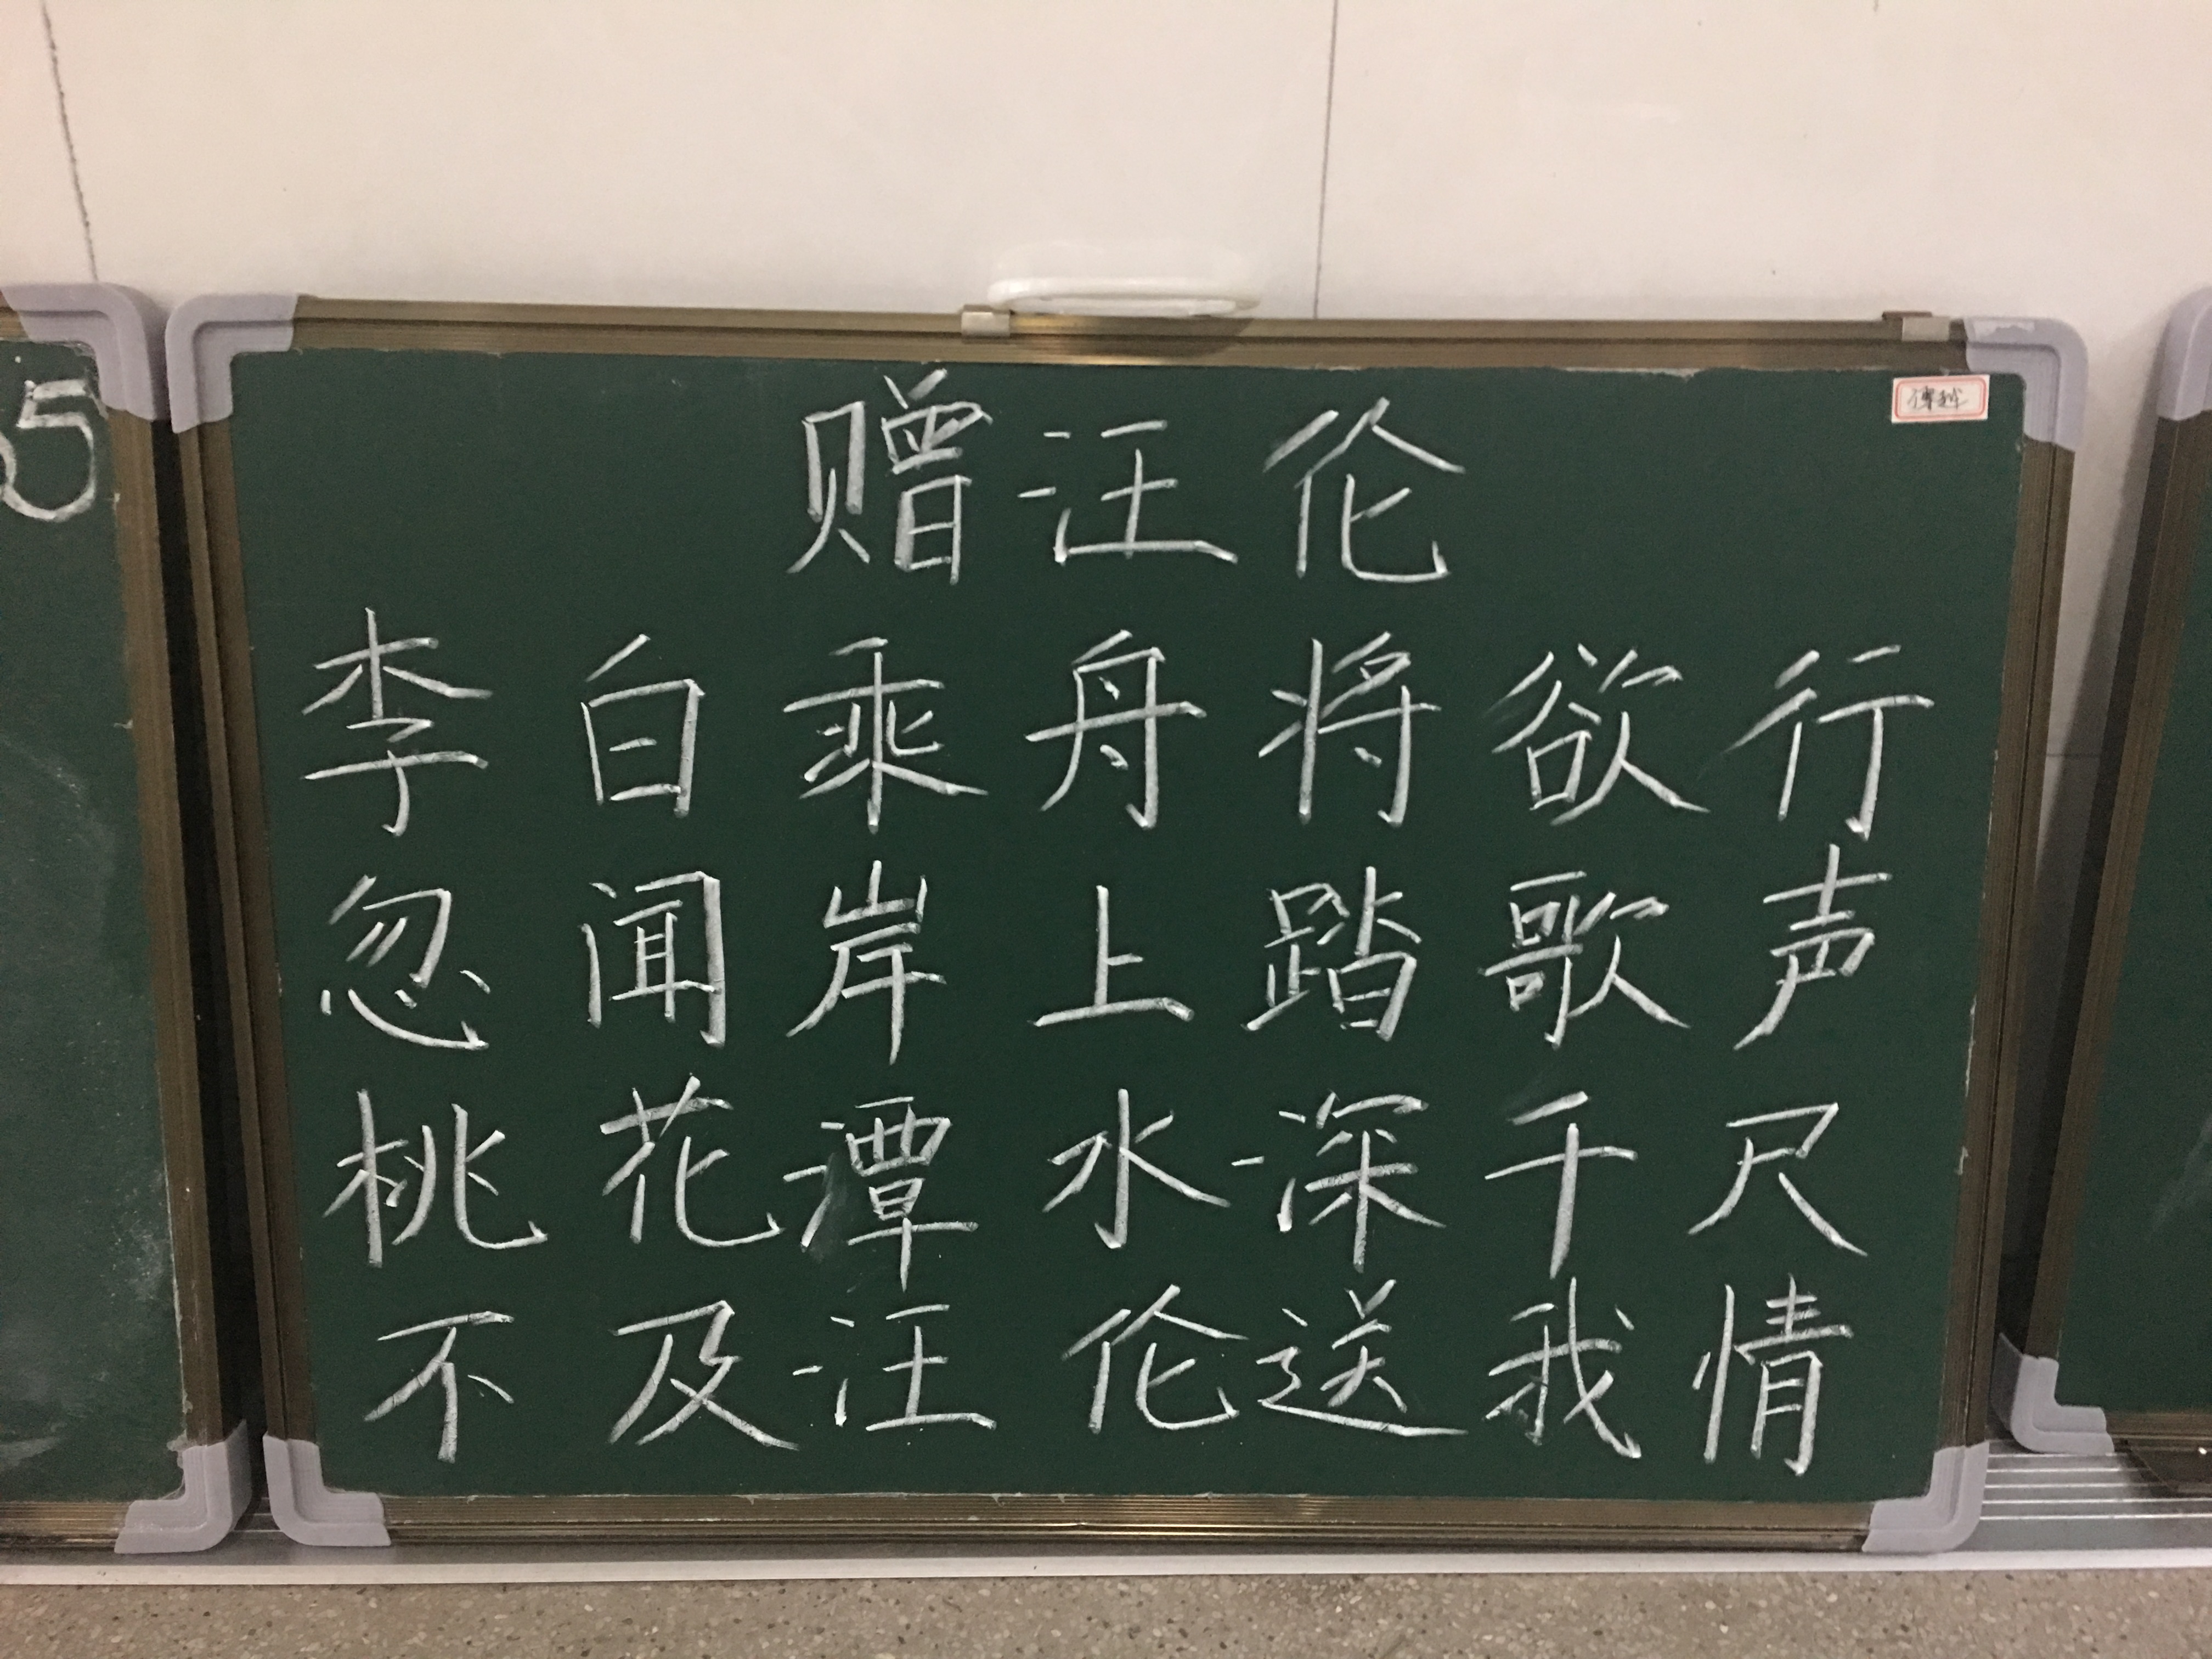 赠汪伦
李白乘舟将欲行
忽闻岸上踏歌声
桃花潭水深千尺
不及汪伦送我情
5